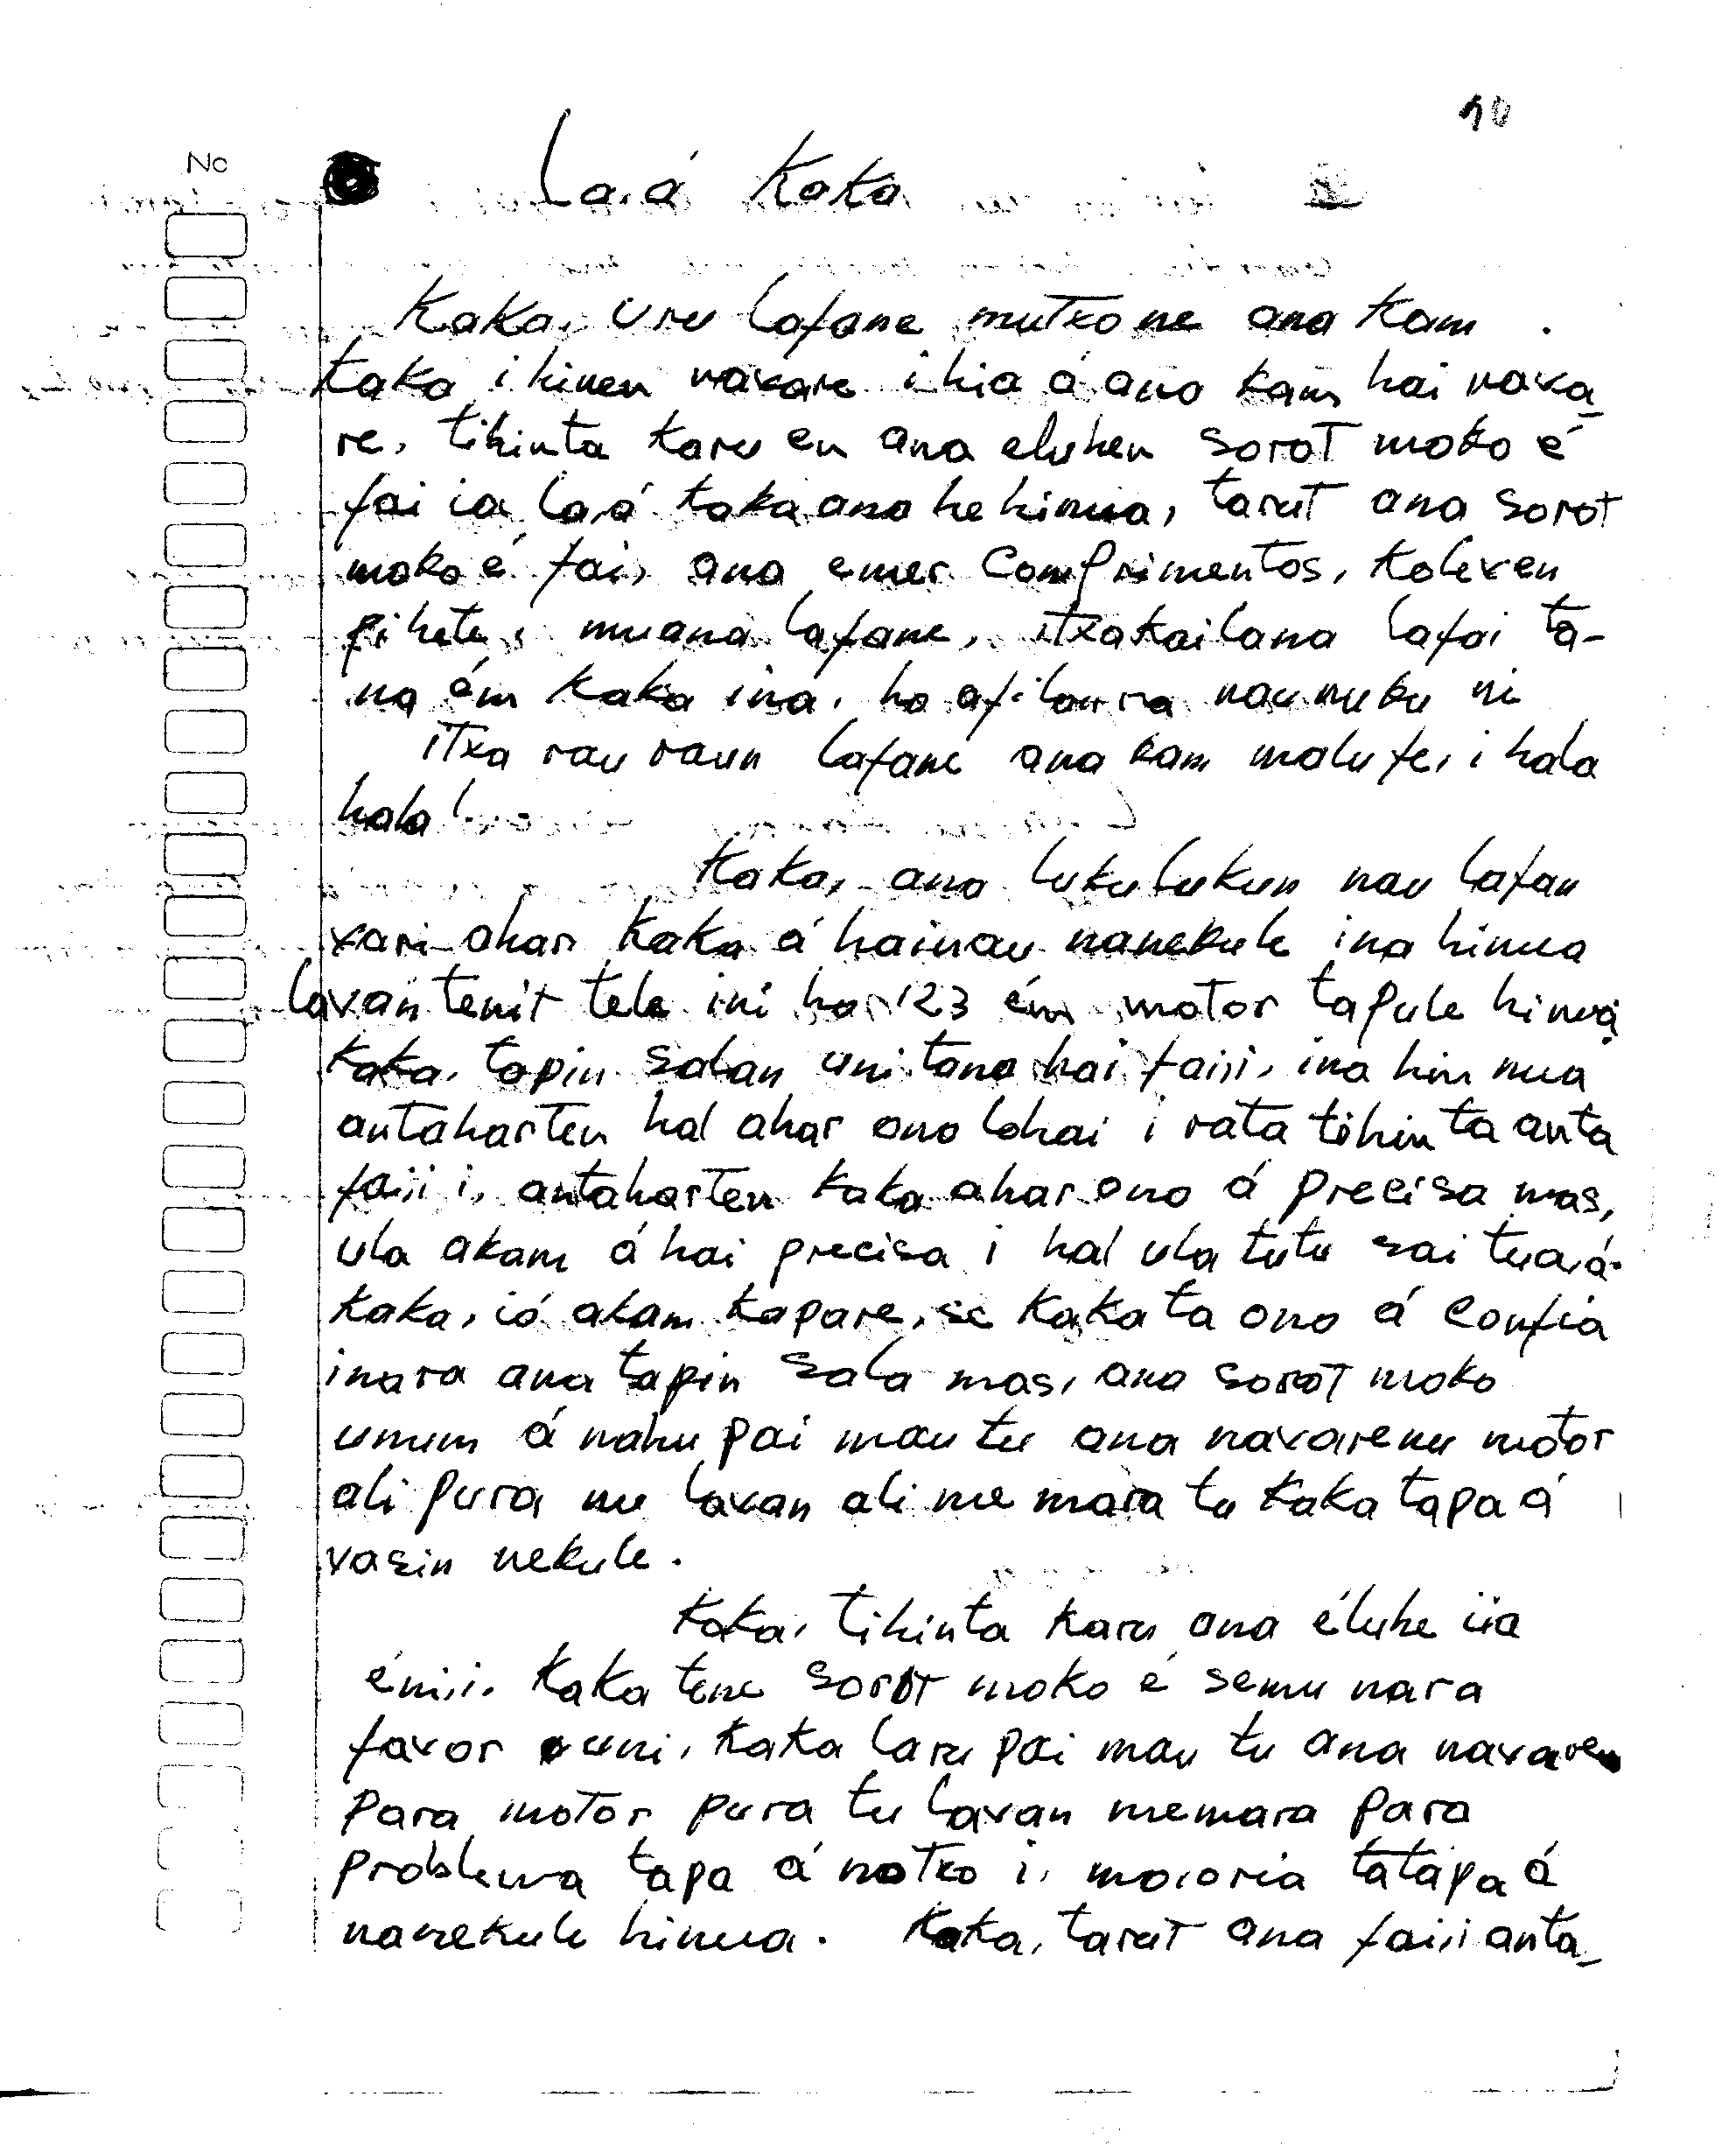 10
No
La.á Kaka
Kaka, uru lafane mutxo ne ana kam.
kaka i hinen navare i hia á ana kam hai nava_
re. tihinta karu en ana eluhen sorot moko é
fai ia la,á kaka ana he hinua, tarut ana sorot
moko é fai, ana emer Comprimentos, Koleven
pihete, muana lafane, itxakailana lafai ta-
na ém kaka ina. ho afilaura nau nuku ni
itxa rau raun lafane ana kam malu fe, i hala
hala!
Kaka, ana lukulukun nau lafan
vari ahar kaka á hainau nanekule ina hinua
lavan tenit tele ini har 123 ém motor tapule hinua
kaka. tapin salan uni tana hai fai,i, ina hin nua
antaharten hal ahar ono lohai i rata tihin ta anta
fai,i i, antaharten kaka ahar ono á precisa mas,
ula akam á hai precisa i hal ula tutu sai tua,á.
kaka, ió akam kapare, se kaka ta ono á confia
inara ana tapin sala mas, ana sorot moko
umum á nahu pai mau tu ana navarenu motor
ali pura nu lavan ali me mara tu kaka tapa á
vasin nekule.
Kaka, tihinta karu ana éluhe iia
émi,i. Kaka tene sorot moko é semu nara
favor uni, kaka laru pai mau tu ana navaren
para motor pura tu lavan memara para
problema tapa á notxo i, maioria tatapa á
nanekule hinua. Kaka, tarut ana fai,i anta_